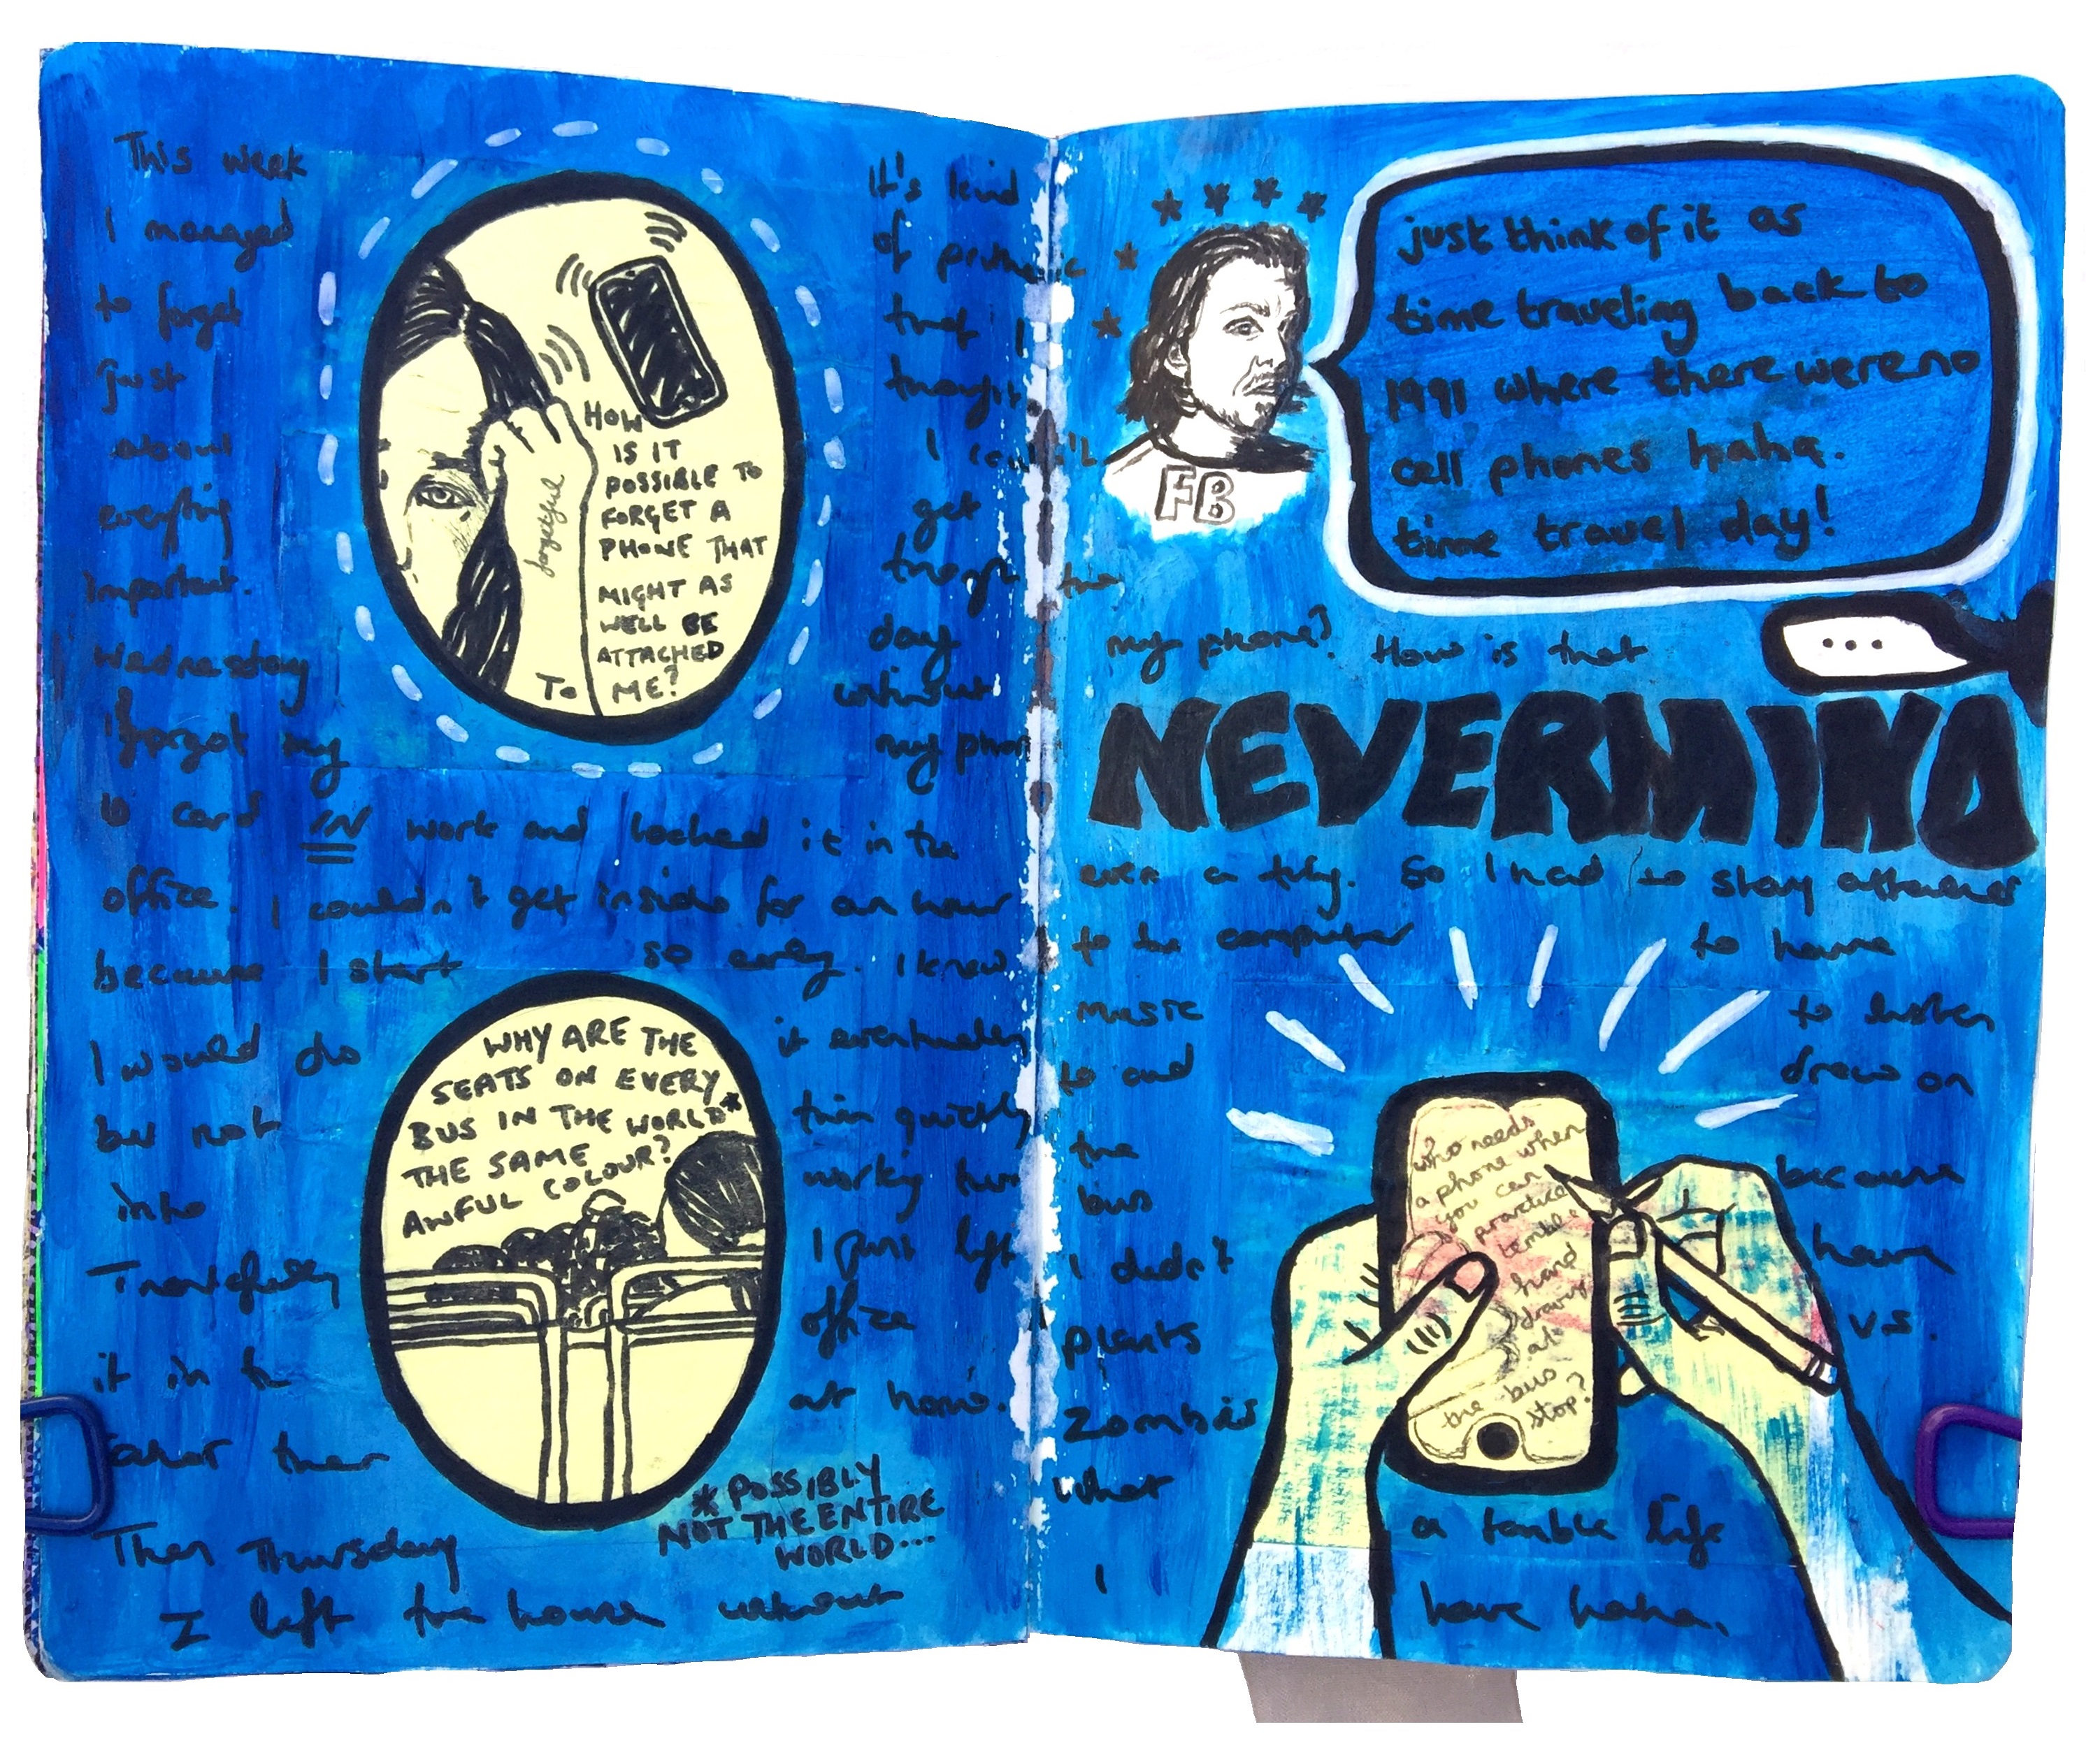 This week
I managed
to forget
just
about
everything
important.
Wednesday
I forgot my
ID card IN work and locked it in the
office. I couldn't get inside for an hour
because I start so early. I knew
I would do
it eventually
but not
twice quickly
into
working here
I just left
it in the
office
rather than
at home.
Then Thursday
I left the house without
HOW
IS IT
POSSIBLE TO
FORGET A
PHONE THAT
MIGHT AS
WELL BE
ATTACHED
TO ME?
forgetful
WHY ARE THE
SEATS ON EVERY
BUS IN THE WORLD*
THE SAME
AWFUL COLOUR?
* POSSIBLY
NOT THE ENTIRE
WORLD...
It's kind
of
that I
thought
I couldn't
get
through the
day
without
my phone
just think of it as
time traveling back to
1991 where there were no
cell phones haha.
time travel day!
FB
...
my phone? How is that
NEVERMIND
even a
So I had to stay attached
to the computer to have
music to listen
to and draw on
the because
bus
I didn't have
plants vs.
Zombies
what a terrible life
I have haha.
who needs
a phone when
you can
practice
terrible
hand
drawing
at
the bus
stop?